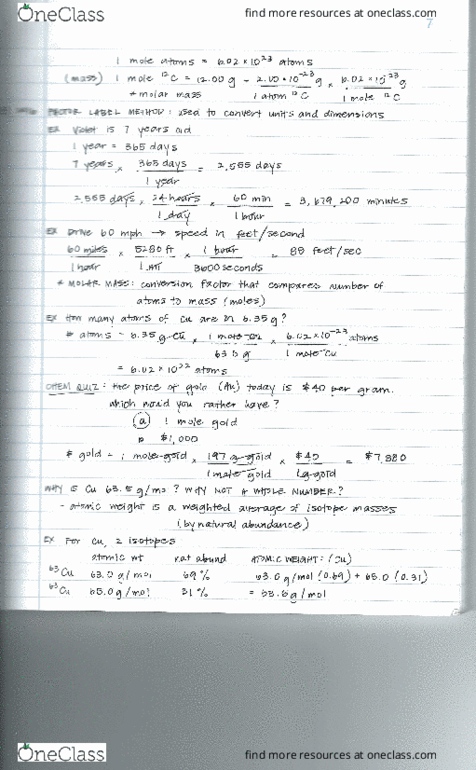 OneClass
find more resources at oneclass.com
7
1 mole atoms = 6.02 × 10²³ atoms
(mass) 1 mole ¹²C = 12.00 g = 2.00 × 10⁻²³ g × 6.02 × 10²³
* molar mass 1 atom ¹²C 1 mole ¹²C
FACTOR LABEL METHOD: used to convert units and dimensions
EX Violet is 7 years old
1 year = 365 days
7 years × 365 days = 2,555 days
1 year
2,555 days × 24 hours × 60 min = 3,679,200 minutes
1 day 1 hour
EX Drive 60 mph → speed in feet/second
60 miles × 5280 ft × 1 hour = 88 feet/sec
1 hour 1 mi 3600 seconds
* MOLAR MASS: conversion factor that compares number of
atoms to mass (moles)
EX How many atoms of Cu are in 6.35 g?
# atoms = 6.35 g Cu × 1 mole Cu × 6.02 × 10⁻²³ atoms
63.5 g 1 mole Cu
= 6.02 × 10²² atoms
CHEM QUIZ: the price of gold (Au) today is $40 per gram.
which would you rather have?
(a) 1 mole gold
b $1,000
$ gold = 1 mole gold × 197 g gold × $40 = $7,880
1 mole gold 1 g gold
WHY IS Cu 63.5 g/mol? WHY NOT A WHOLE NUMBER?
- atomic weight is a weighted average of isotope masses
(by natural abundance)
EX For Cu, 2 isotopes
atomic wt nat abund ATOMIC WEIGHT: (Cu)
⁶³Cu 63.0 g/mol 69% 63.0 g/mol (0.69) + 65.0 (0.31)
⁶⁵Cu 65.0 g/mol 31% = 63.6 g/mol
OneClass
find more resources at oneclass.com